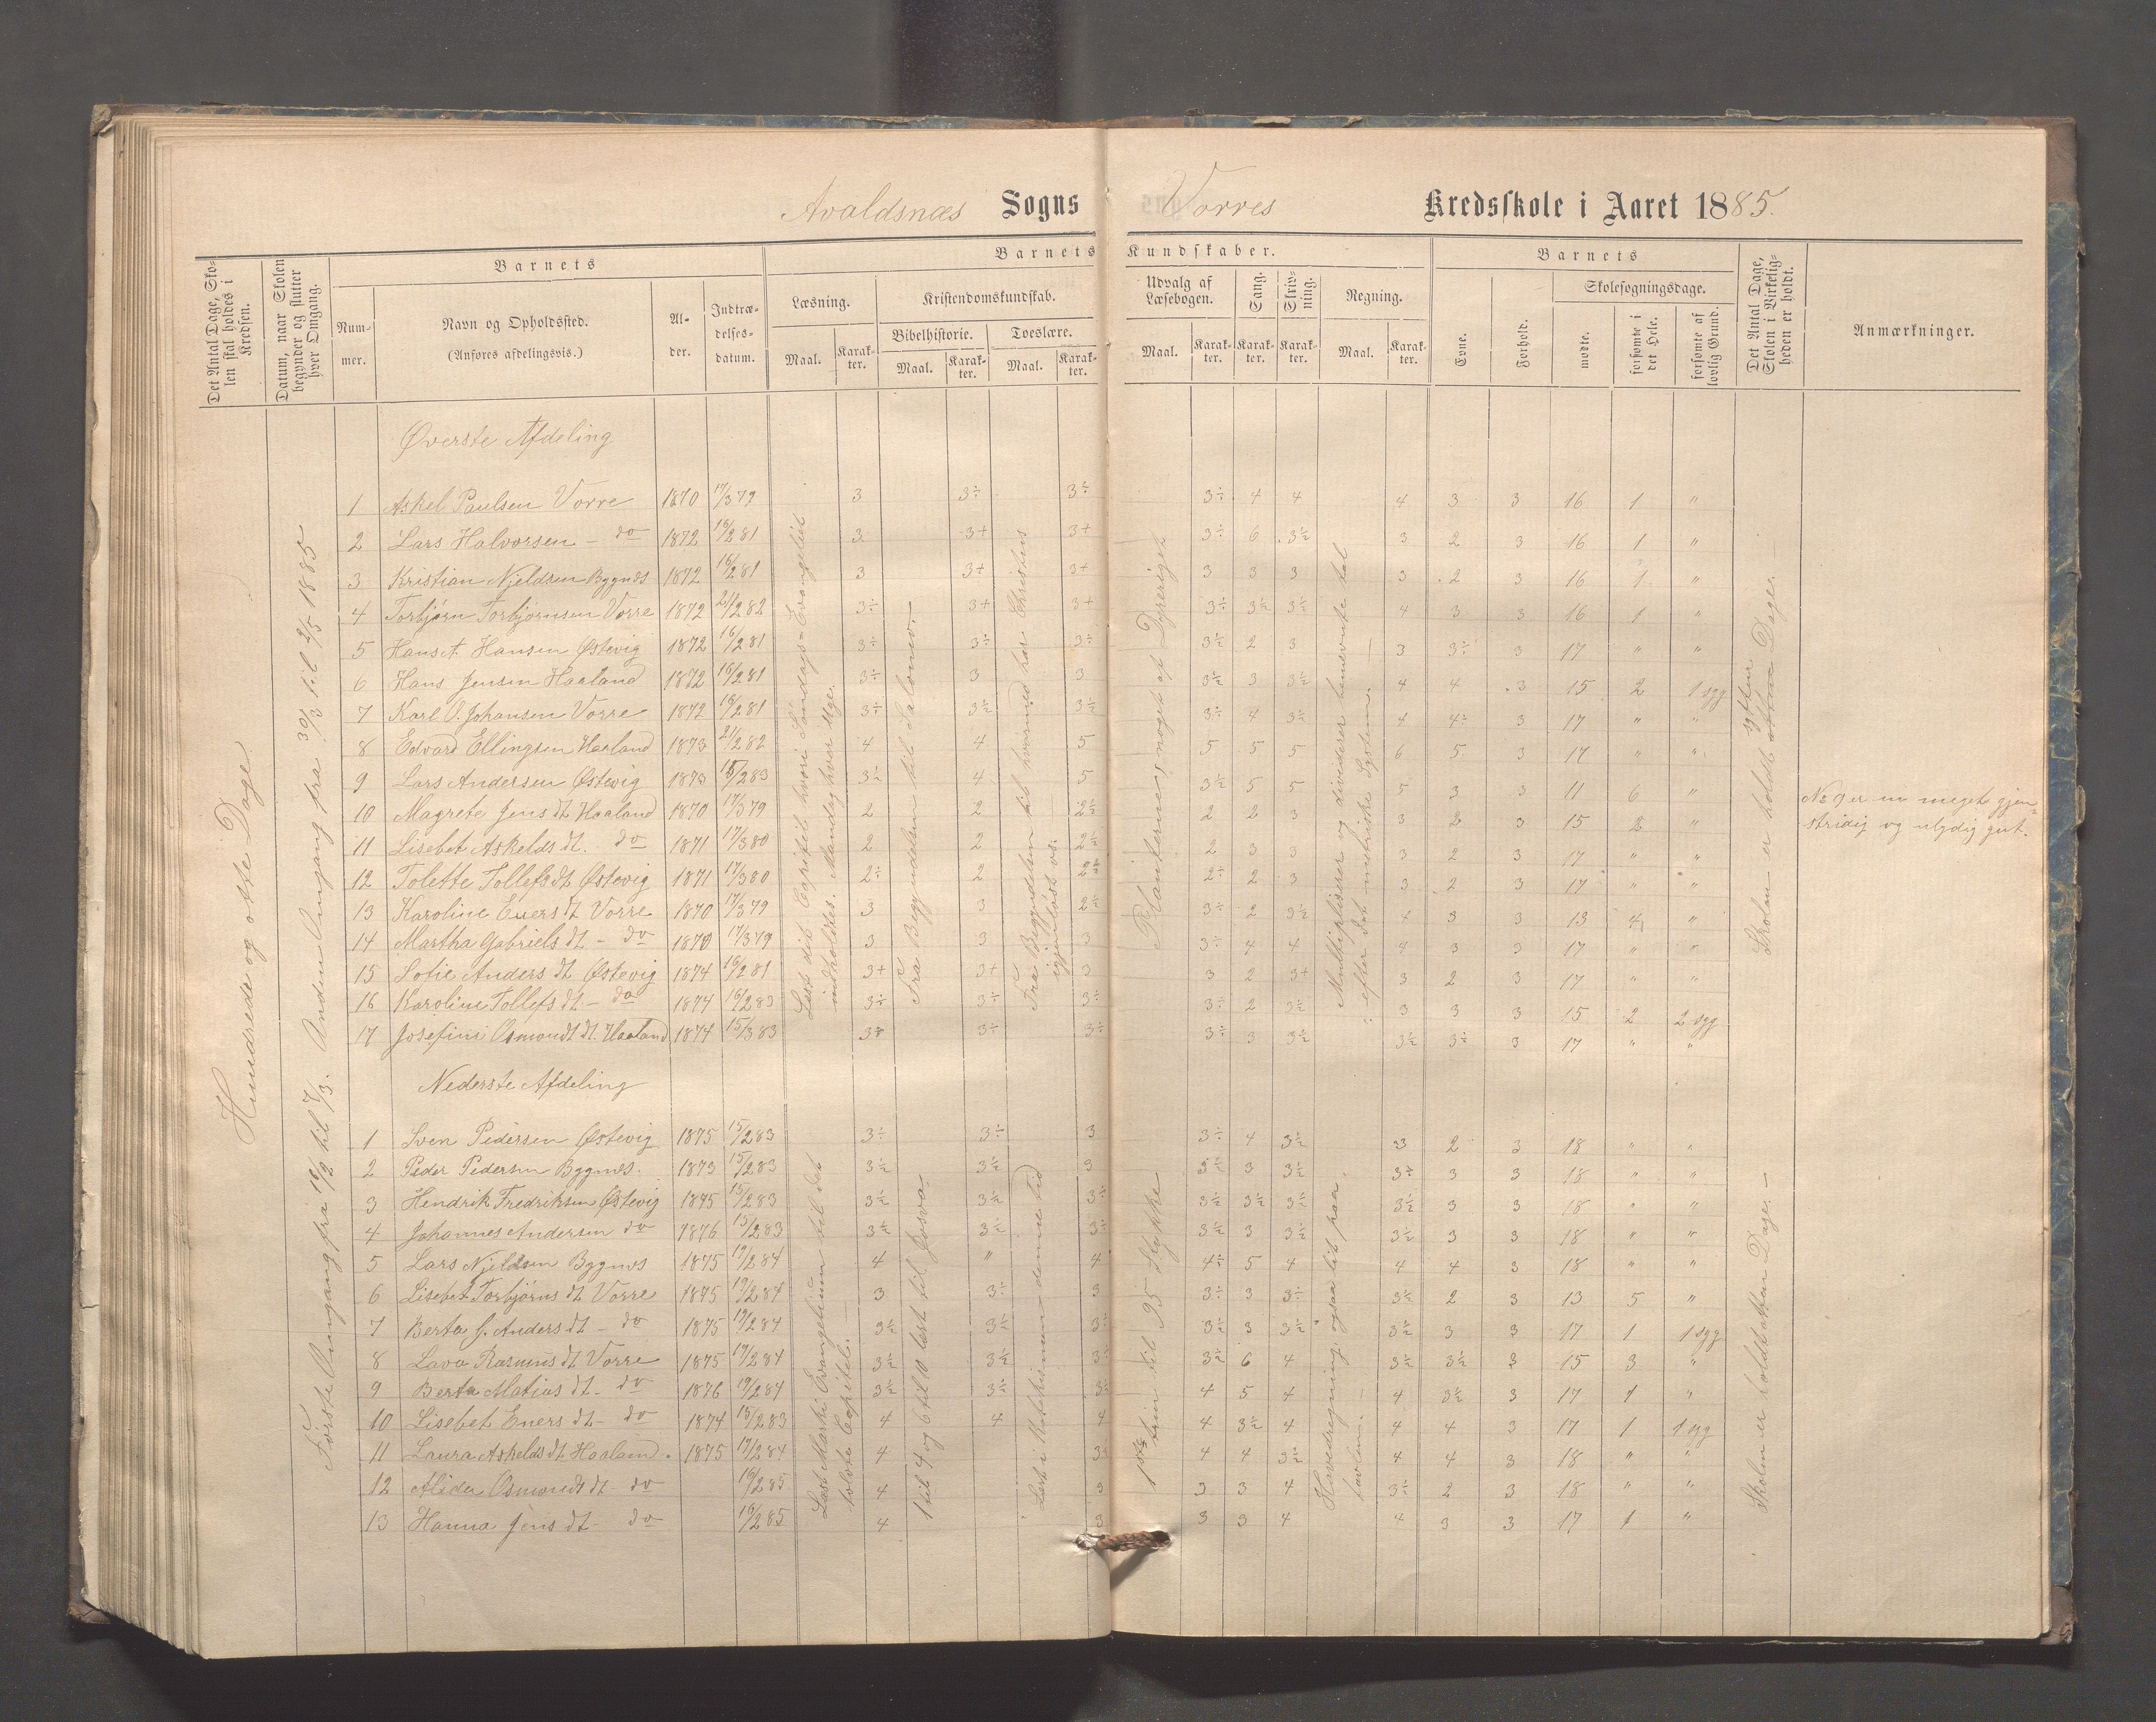 Avaldsnæs Sogns Vorres Kredsskole i Aaret 1885.
Det Antal Dage, Skolen skal holdes i Kredsen.
Datum, naar Skolen begynder og slutter hver Omgang.
Barnets
Nummer.
Navn og Opholdssted.
(Anføres afdelingsvis.)
Alder.
Indtrædelsesdatum.
Barnets Kundskaber.
Læsning.
Maal. Karakter.
Kristendomskundskab.
Bibelhistorie. Troeslære.
Maal. Karakter. Maal. Karakter.
Udvalg af Læsebogen.
Maal. Karakter.
Sang. Karakter.
Skrivning. Karakter.
Regning.
Maal. Karakter.
Barnets
Evne. Forhold.
Skolesøgningsdage.
mødte. forsømte i det Hele. forsømte af lovlig Grund.
Det Antal Dage, Skolen i Virkeligheden er holdt.
Anmærkninger.
Hundrede og otte Dage
Første Omgang fra 16/2 til 7/3. Anden Omgang fra 30/3 til 2/5 1885
Øverste Afdeling
1 Askel Paulsen Vorre 1870 17/3 79 3 3÷ 3÷ 3÷ 4 4 4 3 3 16 1 "
2 Lars Halvorsen - do 1872 16/2 81 3 3+ 3+ 3÷ 6 3½ 3 2 3 16 1 "
3 Kristian Njeldsen Bygnes 1872 16/2 81 3 3+ 3+ 3 3 3 3 2 3 16 1 "
4 Torbjørn Torbjørnsen Vorre 1872 21/2 82 3÷ 3+ 3+ 3÷ 3½ 3½ 4 3 3 16 1 "
5 Hans A. Hansen Østevig 1872 16/2 81 3÷ 3÷ 3÷ 3½ 2 3 3 3÷ 3 17 " "
6 Hans Jensen Haaland 1872 16/2 81 3÷ 3 3 3½ 3 3½ 4 4 3 15 2 1 syg
7 Karl O. Johansen Vorre 1872 16/2 81 3÷ 3½ 3½ 3÷ 4 3½ 4 4÷ 3 17 " "
8 Edvard Ellingsen Haaland 1873 21/2 82 4 4 5 5 5 5 6 5 3 17 " "
9 Lars Andersen Østevig 1873 15/2 83 3½ 4 5 3½ 5 5 5 3 3 11 6 "
10 Magrete Jens dt Haaland 1870 17/3 79 2 2 2½ 2 2 3 3 2 3 15 2 "
11 Lisebet Askelds dt. do 1871 17/3 80 2 2 2½ 2 3 3 3 2 3 17 " "
12 Tolette Tollefs dt Østevig 1871 17/3 80 2÷ 2 2½ 2÷ 2 3 3 2 3 17 " "
13 Karoline Eners dt Vorre 1870 17/3 79 3 3 2½ 3÷ 2 3½ 4 3 3 13 4 "
14 Martha Gabriels dt - do 1870 17/3 79 3 3 3 3÷ 4 4 4 3 3 17 " "
15 Sofie Anders dt Østevig 1874 16/2 81 3+ 3+ 3 3 2 3+ 3 2 3 17 " "
16 Karoline Tollefs dt - do 1874 16/2 83 3÷ 3÷ 3÷ 3÷ 2 3½ 3 3 3 15 2 2 syg
17 Josefine Osmonds dt. Haaland 1874 15/3 83 3÷ 3÷ 3÷ 3÷ 3 3½ 3½ 3÷ 3 17 " "
Læst dit Capitel hvori Søndags-Evangeliet indholdes. Mandag hver Uge.
Fra Begyndelsen til Salomo.
Fra Begyndelsen til hvormed har Christus igjenløst os.
Planterne, noget af Dyreriget
Multipliserer og dividerer benævnte tal efter det metriske System.
Skolen er holdt sytten Dage.
No 9 er en meget gjenstridig og ulydig gut.
Nederste Afdeling
1 Sven Pedersen Østevig 1875 15/2 83 3÷ 3÷ 3 3÷ 4 3½ 3 2 3 18 " "
2 Peder Pedersen Bygnes. 1873 15/2 83 3½ 3½ 3 3½ 3 3½ 3÷ 3 3 18 " "
3 Hendrik Fredriksen Østevig 1875 15/2 83 3½ 3½ 3½ 3½ 3½ 3½ 3½ 3 3 18 " "
4 Johannes Andersen do 1876 15/2 83 3½ 3½ 3÷ 3½ 3 3½ 3½ 3 3 18 " "
5 Lars Njeldsen Bygnes 1875 19/2 84 4 " 4 4÷ 5 4 4 4 3 18 " "
6 Lisebet Torbjørns dt Vorre 1875 19/2 84 3 3÷ 3 3÷ 3 3÷ 3½ 2 3 13 5 "
7 Berta J. Anders dt - do 1875 19/2 84 3½ 3½ 3÷ 3½ 3 3½ 3½ 3 3 17 1 1 syg
8 Lava Rasmus dt Vorre 1875 19/2 84 3½ 3½ 3½ 3½ 6 4 3½ 3½ 3 15 3 "
9 Berta Matias dt - do 1876 19/2 84 3½ 3½ 3½ 4 5 4 4 3½ 3 17 1 "
10 Lisebet Eners dt - do 1874 15/2 83 4 4 4 4 3½ 4 4 4 3 17 1 1 syg
11 Laura Askelds dt Haaland. 1875 19/2 84 4 3½ 4 4 3½ 4 4 3 18 " "
12 Alida Osmonds dt - do 16/2 85 4 3 3 3 4 3½ 2 3 18 " "
13 Hanna Jens dt - do 16/2 85 4 3 3 3 4 4 3 3 17 1 "
Læst Marki Evangelium til det tolvte Capitel.
1 til 4 og 6 til 10 læst til Josva
Læst i denne tid
til 95 Stykke
Hovedregning ogsaa lit paa tavlen.
Skolen er holdt atten Dage. -